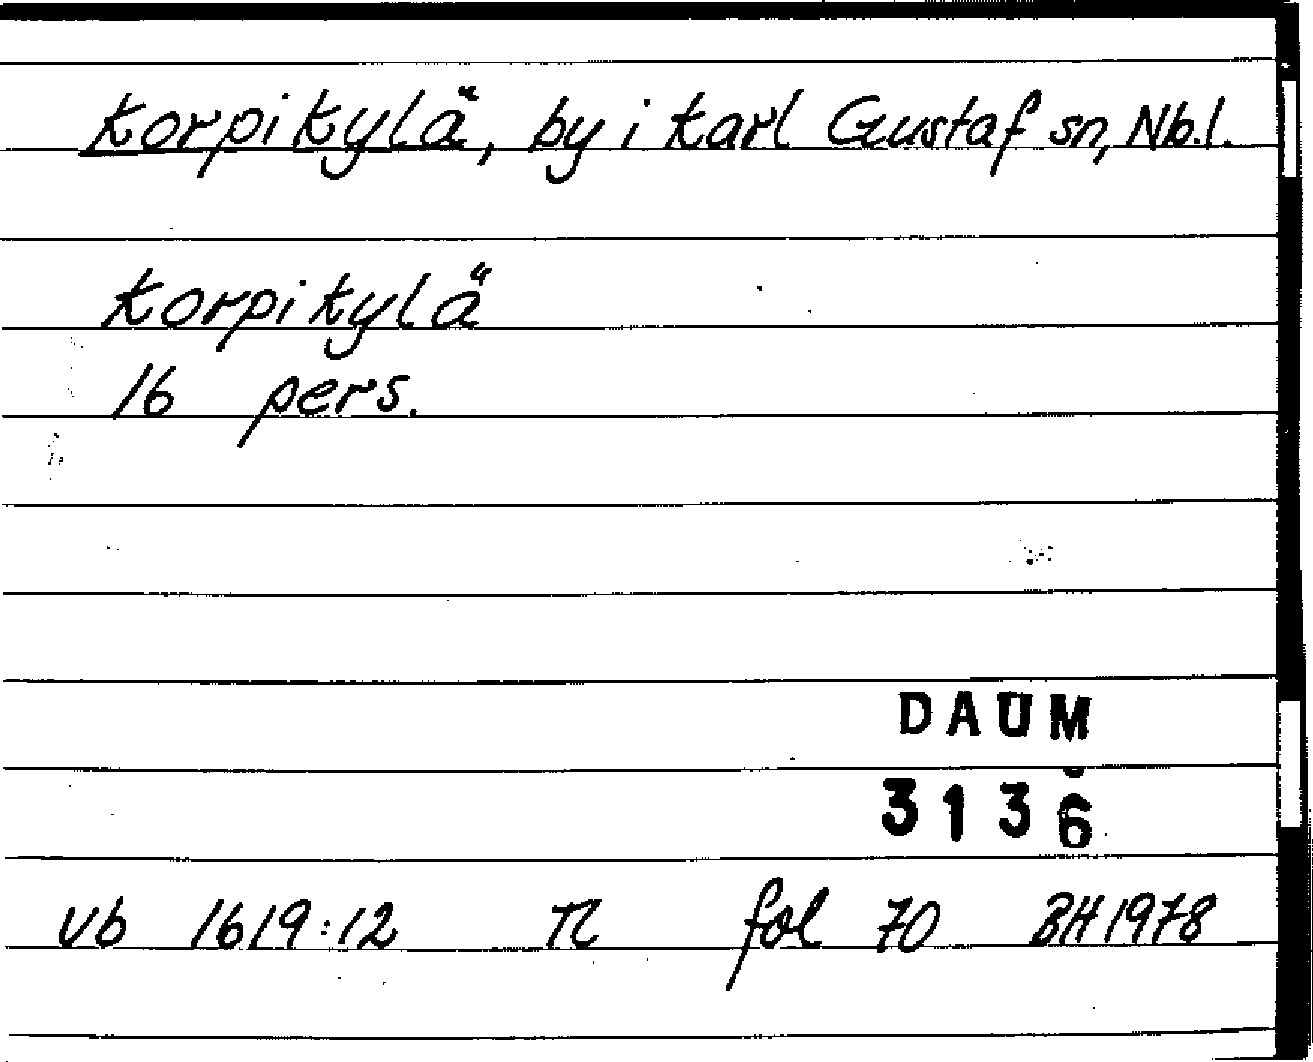 Korpikylä, by i Karl Gustaf sn, Nb.l.
Korpikylä
16 pers.
DAUM
3136
Vb 1619:12 Tl fol 70 BH 1978